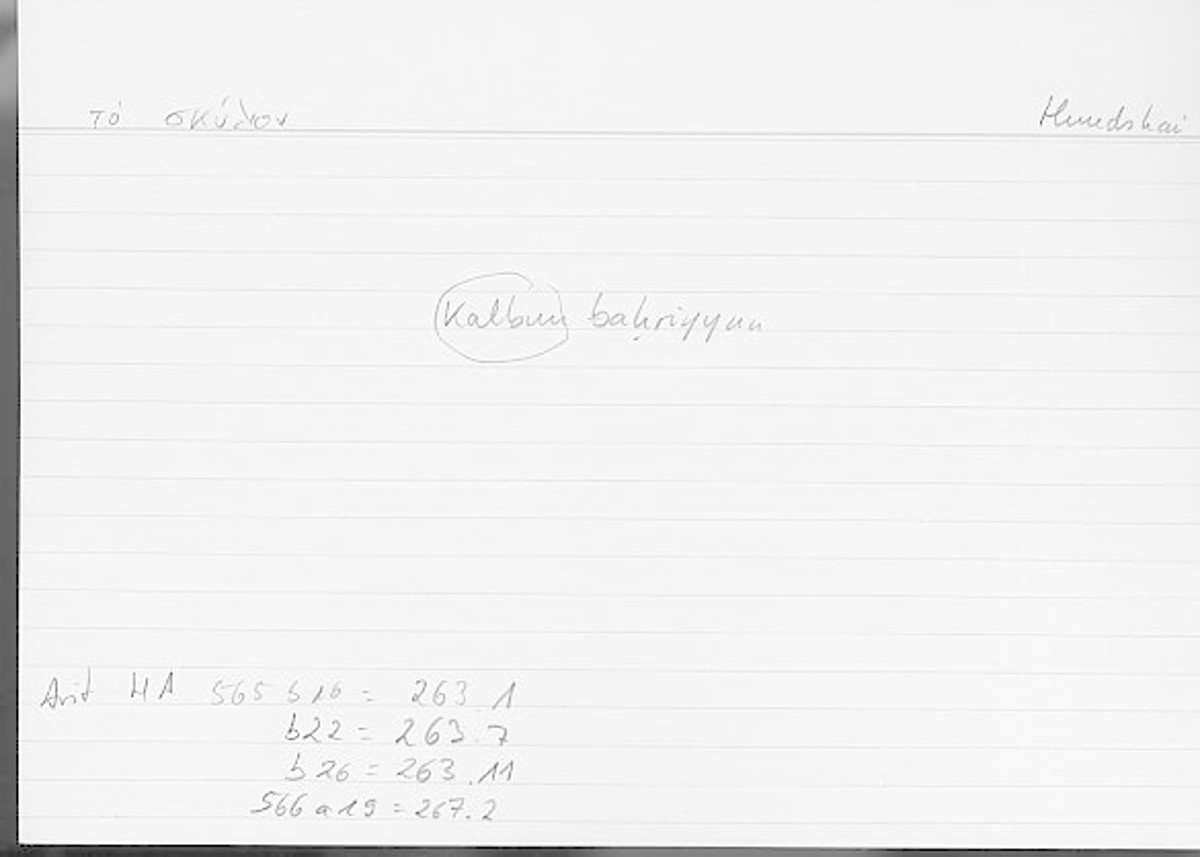 τό σκύλον Hundshai
Kalbun baḥriyyun
Arist HA 565 b16 = 263.1
b22 = 263.7
b26 = 263.11
566 a19 = 267.2